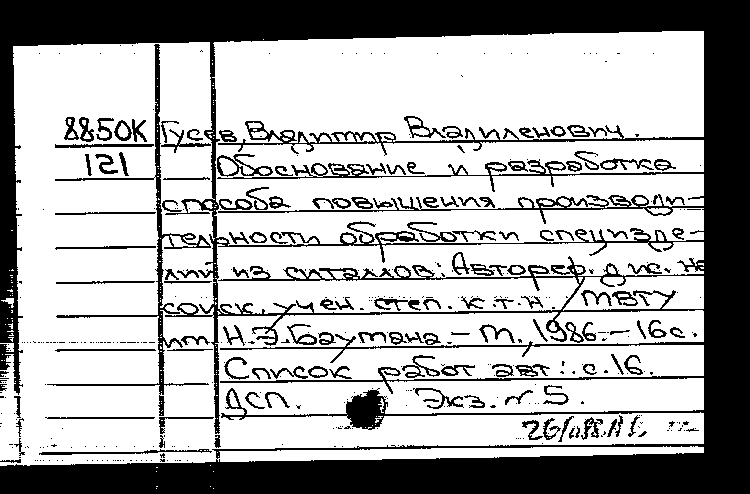 8850К Гусев, Владимир Владиленович.
121 Обоснование и разработка
способа повышения производи-
тельности обработки специзде-
лий из ситаллов: Автореф. дис. на
соиск. учен. степ. к.т.н. / МВТУ
им. Н.Э. Баумана. - М., 1986. - 16 с.
Список работ авт.: с. 16.
ДСП. Экз. № 5.